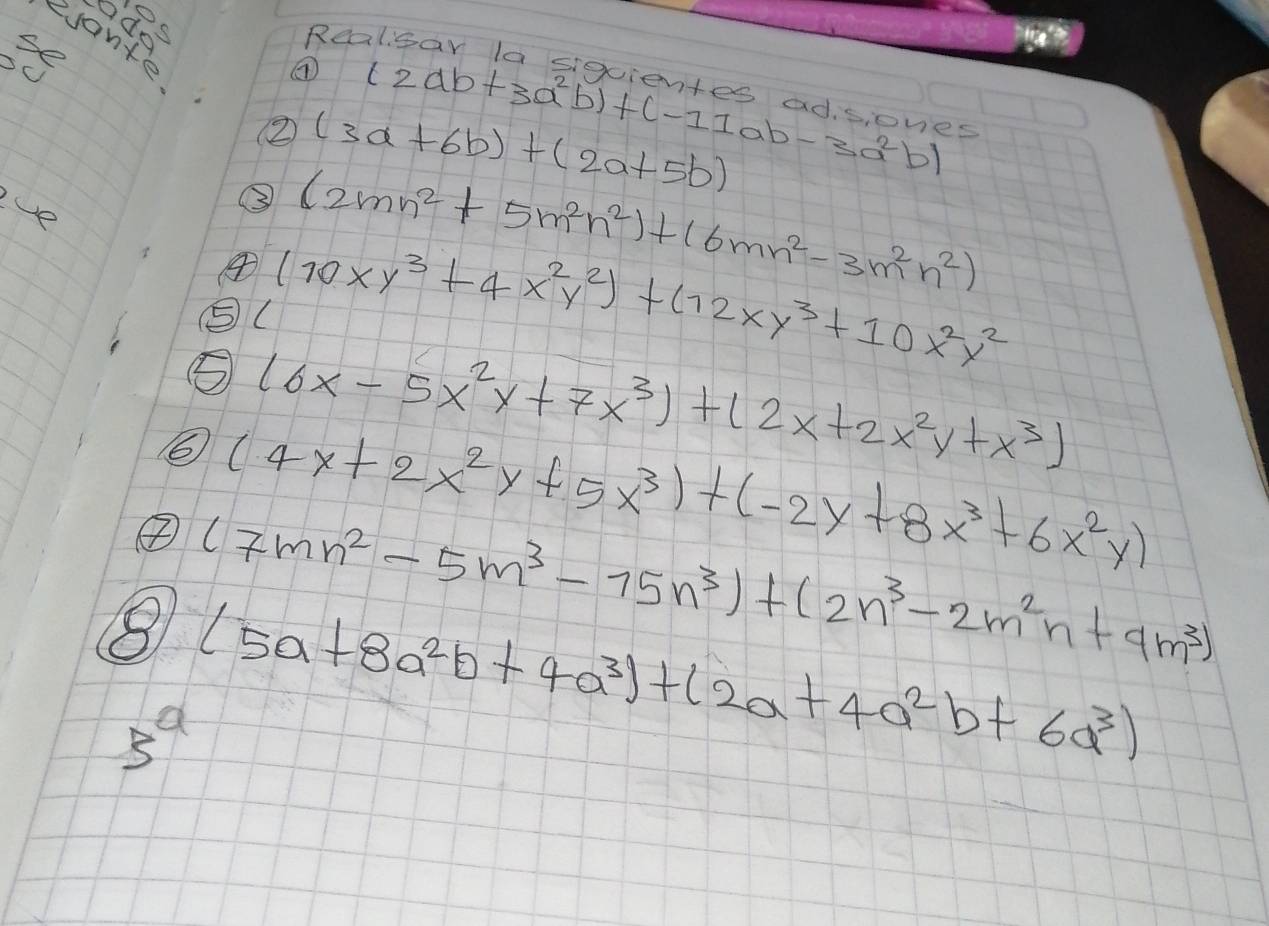 ados
evante.
se
ue
Realisar la siguientes adisiones
① (2ab+3a²b)+(-11ab-3a²b)
② (3a+6b)+(2a+5b)
③ (2mn²+5m²n²)+(6mn²-3m²n²)
④ (10xy³+4x²y²)+(12xy³+10x²y²
⑤ (
⑤ (6x-5x²y+7x³)+(2x+2x²y+x³)
⑥ (4x+2x²y+5x³)+(-2y+8x³+6x²y)
⑦ (7mn²-5m³-15n³)+(2n³-2m²n+9m³)
⑧ (5a+8a²b+4a³)+(2a+4a²b+6a³)